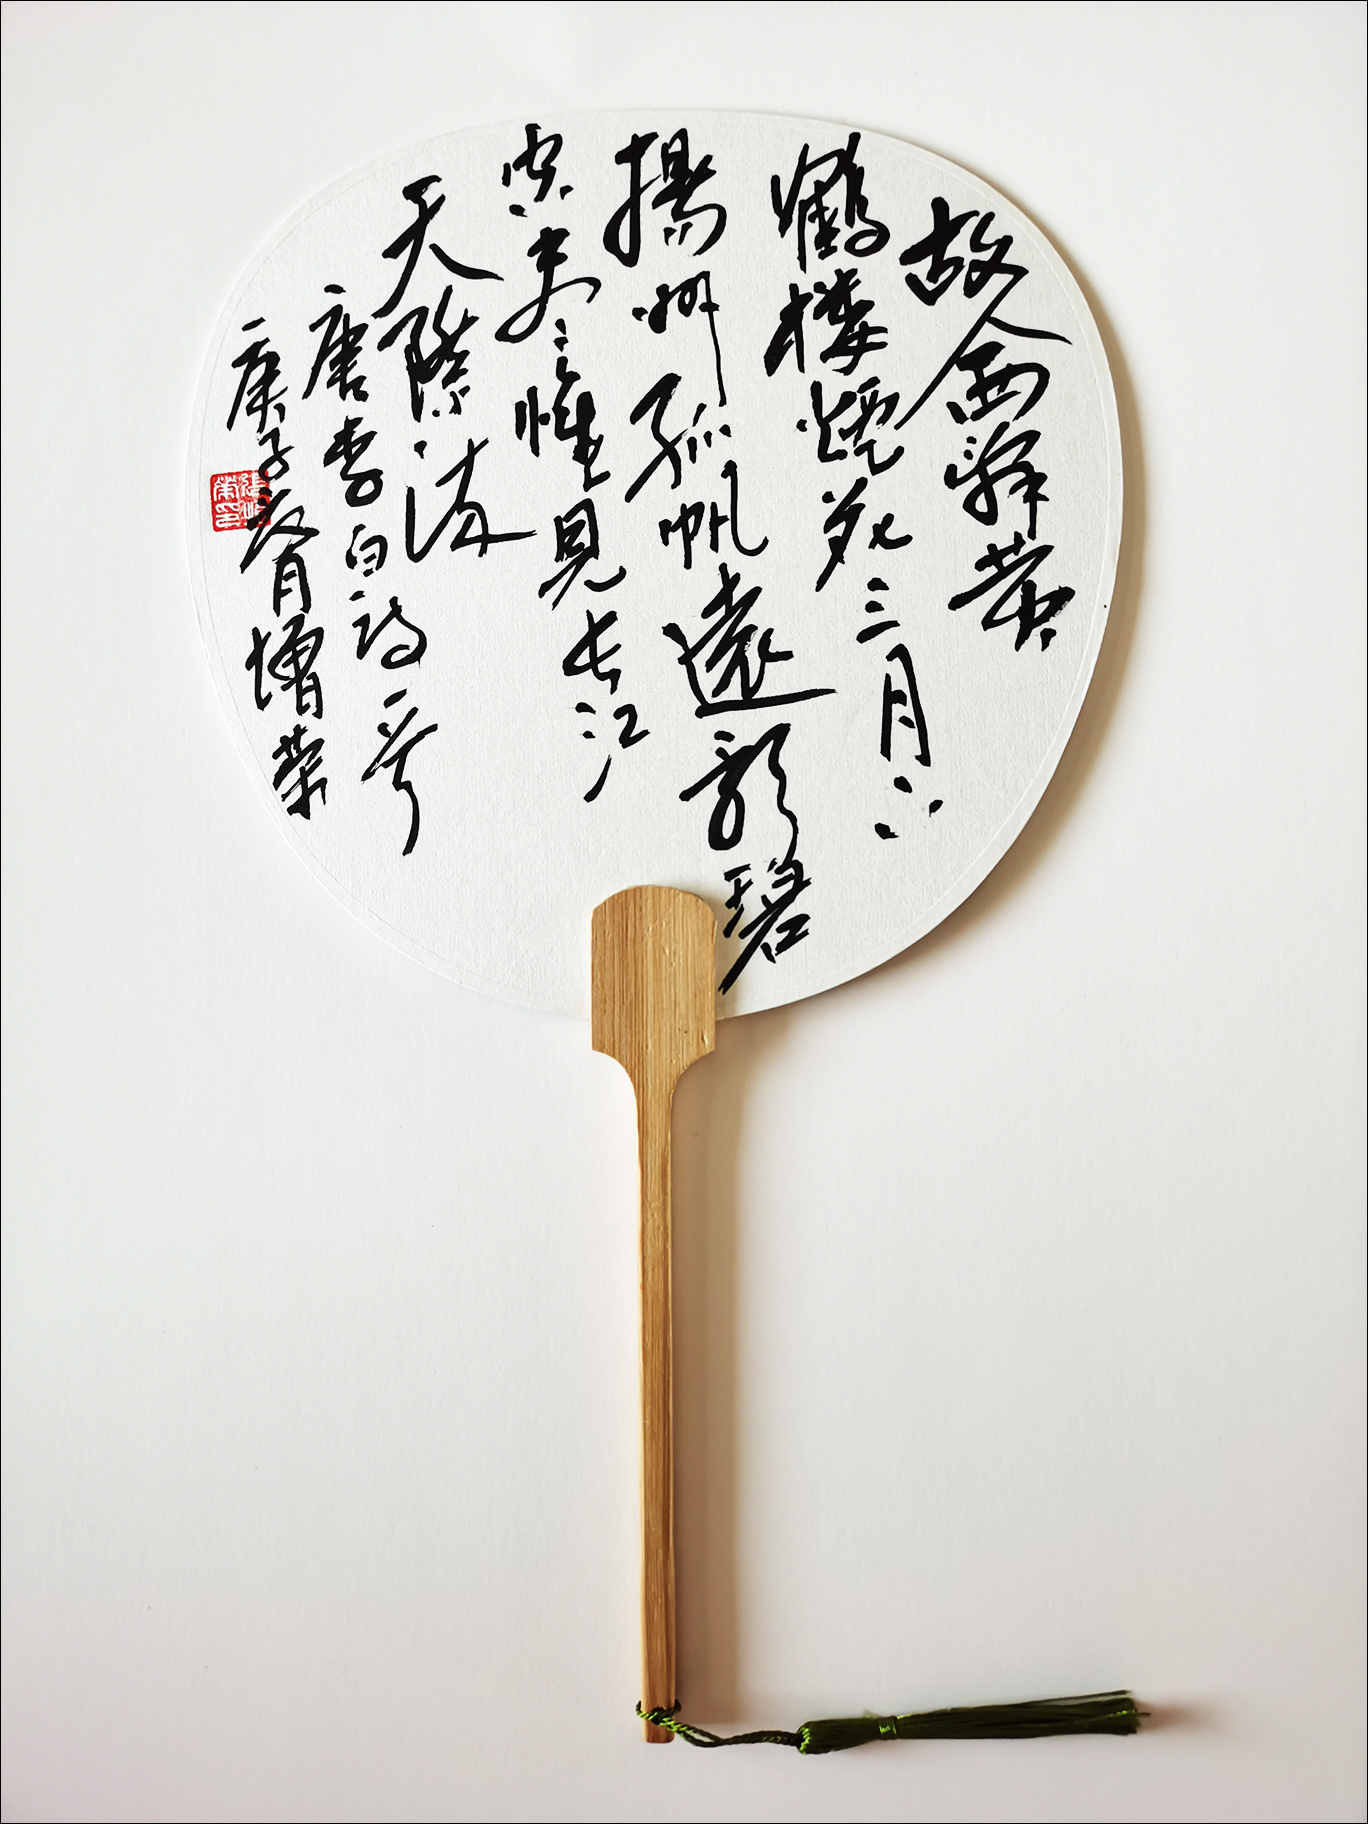 故人西辞黄
鶴楼煙花三月下
揚州孤帆遠影碧
空尽惟見长江
天際流
唐李白诗一首
庚子月增荣